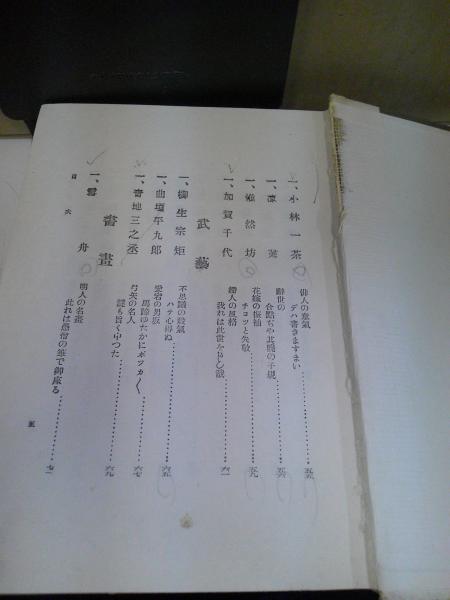 一、小林一茶
俳人の意氣
デハ書きますまい……五五
辭世の
合點ぢや其曉の子規……五六
一、惟然坊
花嫁の振袖
チヨツと失敬……五九
一、加賀千代
我れは此世を……六一
武藝
一、柳生宗矩
不思議の殺氣
ハテ心得ぬ……六五
一、曲垣平九郎
愛宕の男坂
馬蹄ゆたかにポツカ〱……六七
一、青地三之丞
弓矢の名人
謎も旨く中つた……六九
書畫
一、雪舟
明人の名畫
此れは愚僧の筆で御座る……七一
目次
五